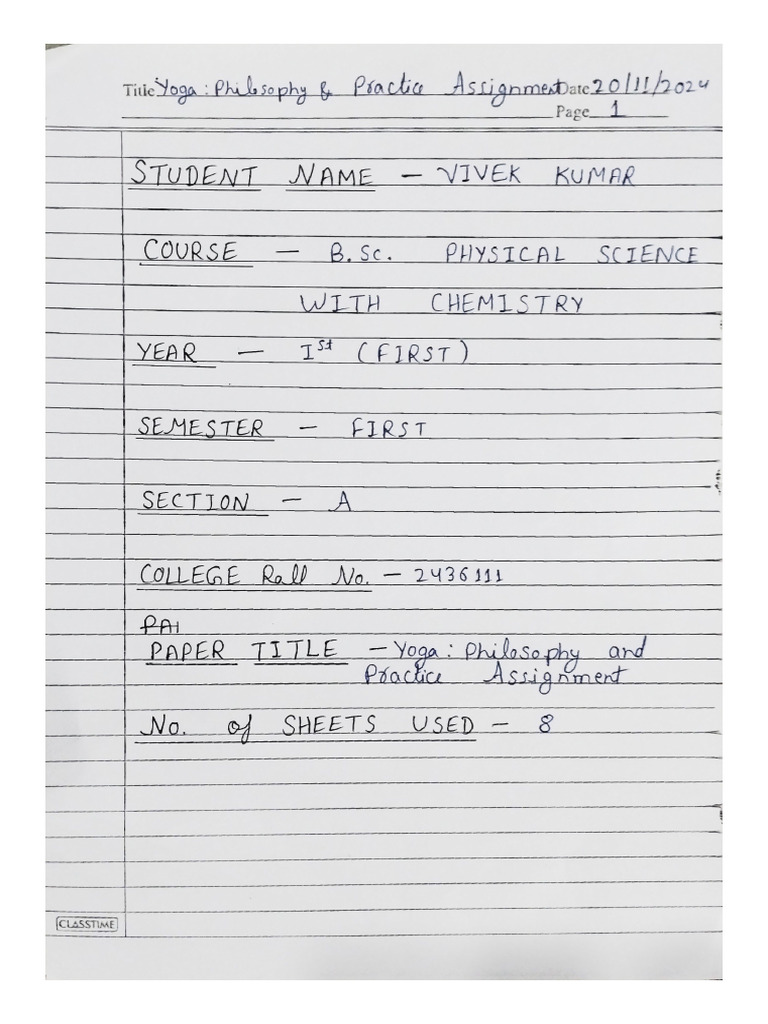 Title Yoga : Philosophy & Practice Assignment Date 20/11/2024
Page 1
STUDENT NAME - VIVEK KUMAR
COURSE - B.Sc. PHYSICAL SCIENCE
WITH CHEMISTRY
YEAR - Ist (FIRST)
SEMESTER - FIRST
SECTION - A
COLLEGE Roll No. - 2436111
PAI
PAPER TITLE - Yoga : Philosophy and
Practice Assignment
No. of SHEETS USED - 8
CLASSTIME